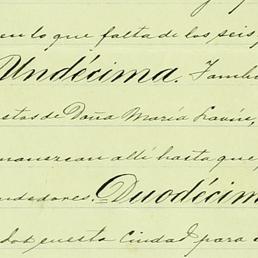 en lo que falta de los seis,
Undécima. Tambi
estos de Doña María
manezcan allí hasta que,
endedores. Duodécim
dos en esta Ciudad para